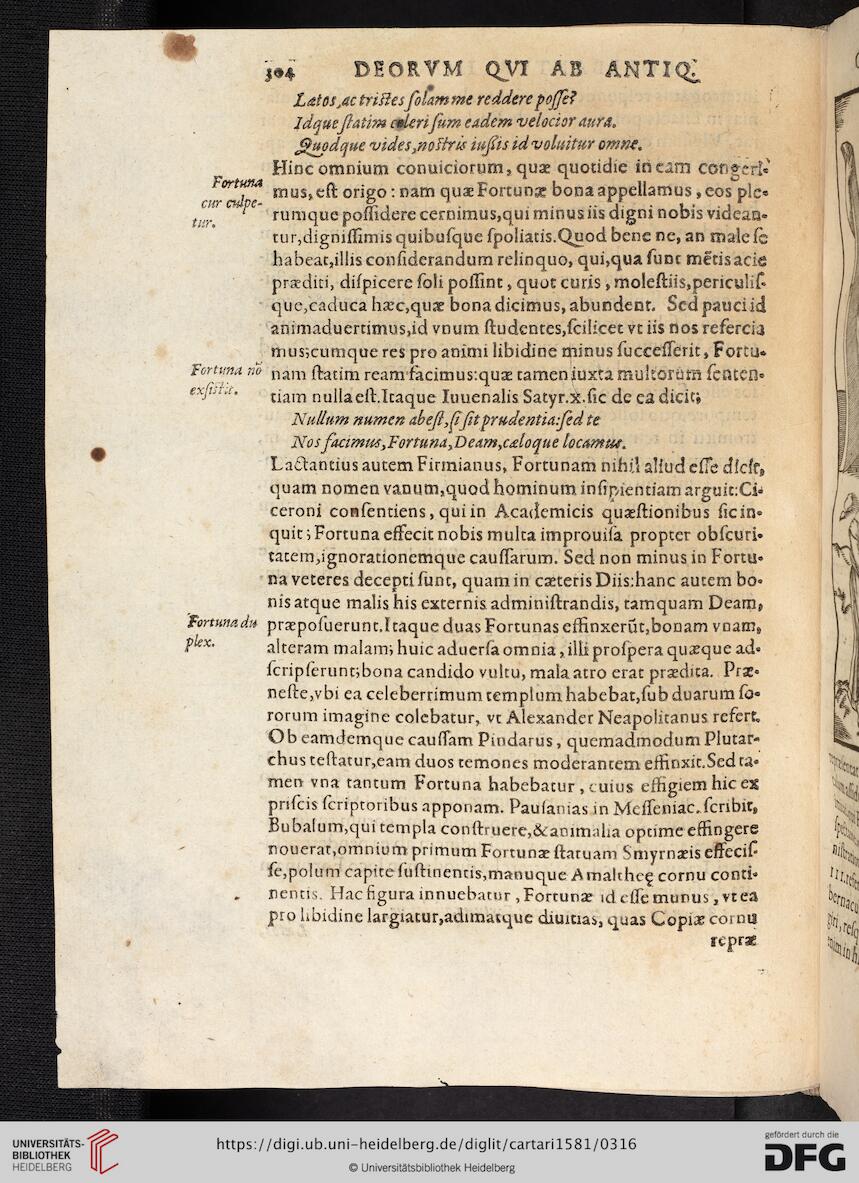 304 DEORVM QVI AB ANTIQ.
Lætos, ac tristes solam me reddere posse?
Idque statim celeri sum eadem velocior aura.
Quodque vides, nostris iussis id voluitur omne.
Hinc omnium conuiciorum, quæ quotidie in eam congeri-
Fortuna
cur culpe-
tur.
mus, est origo: nam quæ Fortunæ bona appellamus, eos ple-
rumque possidere cernimus, qui minus iis digni nobis videan-
tur, dignissimis quibusque spoliatis. Quod bene ne, an male se
habeat, illis considerandum relinquo, qui, qua sunt mẽtis acie
præditi, dispicere soli possint, quot curis, molestiis, periculis-
que, caduca hæc, quæ bona dicimus, abundent. Sed pauci id
animaduertimus, id vnum studentes, scilicet vt iis nos refercia
mus; cumque res pro animi libidine minus successerit, Fortu-
Fortuna nõ
exsistit.
nam statim ream facimus: quæ tamen iuxta multorum senten-
tiam nulla est. Itaque Iuuenalis Satyr. x. sic de ea dicit;
Nullum numen abest, si sit prudentia: sed te
Nos facimus, Fortuna, Deam, cæloque locamus.
Lactantius autem Firmianus, Fortunam nihil aliud esse dicit,
quam nomen vanum, quod hominum insipientiam arguit: Ci-
ceroni consentiens, qui in Academicis quæstionibus sic in-
quit; Fortuna effecit nobis multa improuisa propter obscuri-
tatem, ignorationemque caussarum. Sed non minus in Fortu-
na veteres decepti sunt, quam in cæteris Diis: hanc autem bo-
nis atque malis his externis administrandis, tamquam Deam,
Fortuna du
plex.
præposuerunt. Itaque duas Fortunas effinxerũt, bonam vnam,
alteram malam; huic aduersa omnia, illi prospera quæque ad-
scripserunt; bona candido vultu, mala atro erat prædita. Præ-
neste, vbi ea celeberrimum templum habebat, sub duarum so-
rorum imagine colebatur, vt Alexander Neapolitanus refert.
Ob eamdemque caussam Pindarus, quemadmodum Plutar-
chus testatur, eam duos temones moderantem effinxit. Sed ta-
men vna tantum Fortuna habebatur, cuius effigiem hic ex
priscis scriptoribus apponam. Pausanias in Messeniac. scribit,
Bubalum, qui templa construere, & animalia optime effingere
nouerat, omnium primum Fortunæ statuam Smyrnæis effecis-
se, polum capite sustinentis, manuque Amaltheę cornu conti-
nentis. Hac figura innuebatur, Fortunæ id esse munus, vt ea
pro libidine largiatur, adimatque diuitias, quas Copiæ cornu
repræ
UNIVERSITÄTS-
BIBLIOTHEK
HEIDELBERG
https://digi.ub.uni-heidelberg.de/diglit/cartari1581/0316
© Universitätsbibliothek Heidelberg
gefördert durch die
DFG